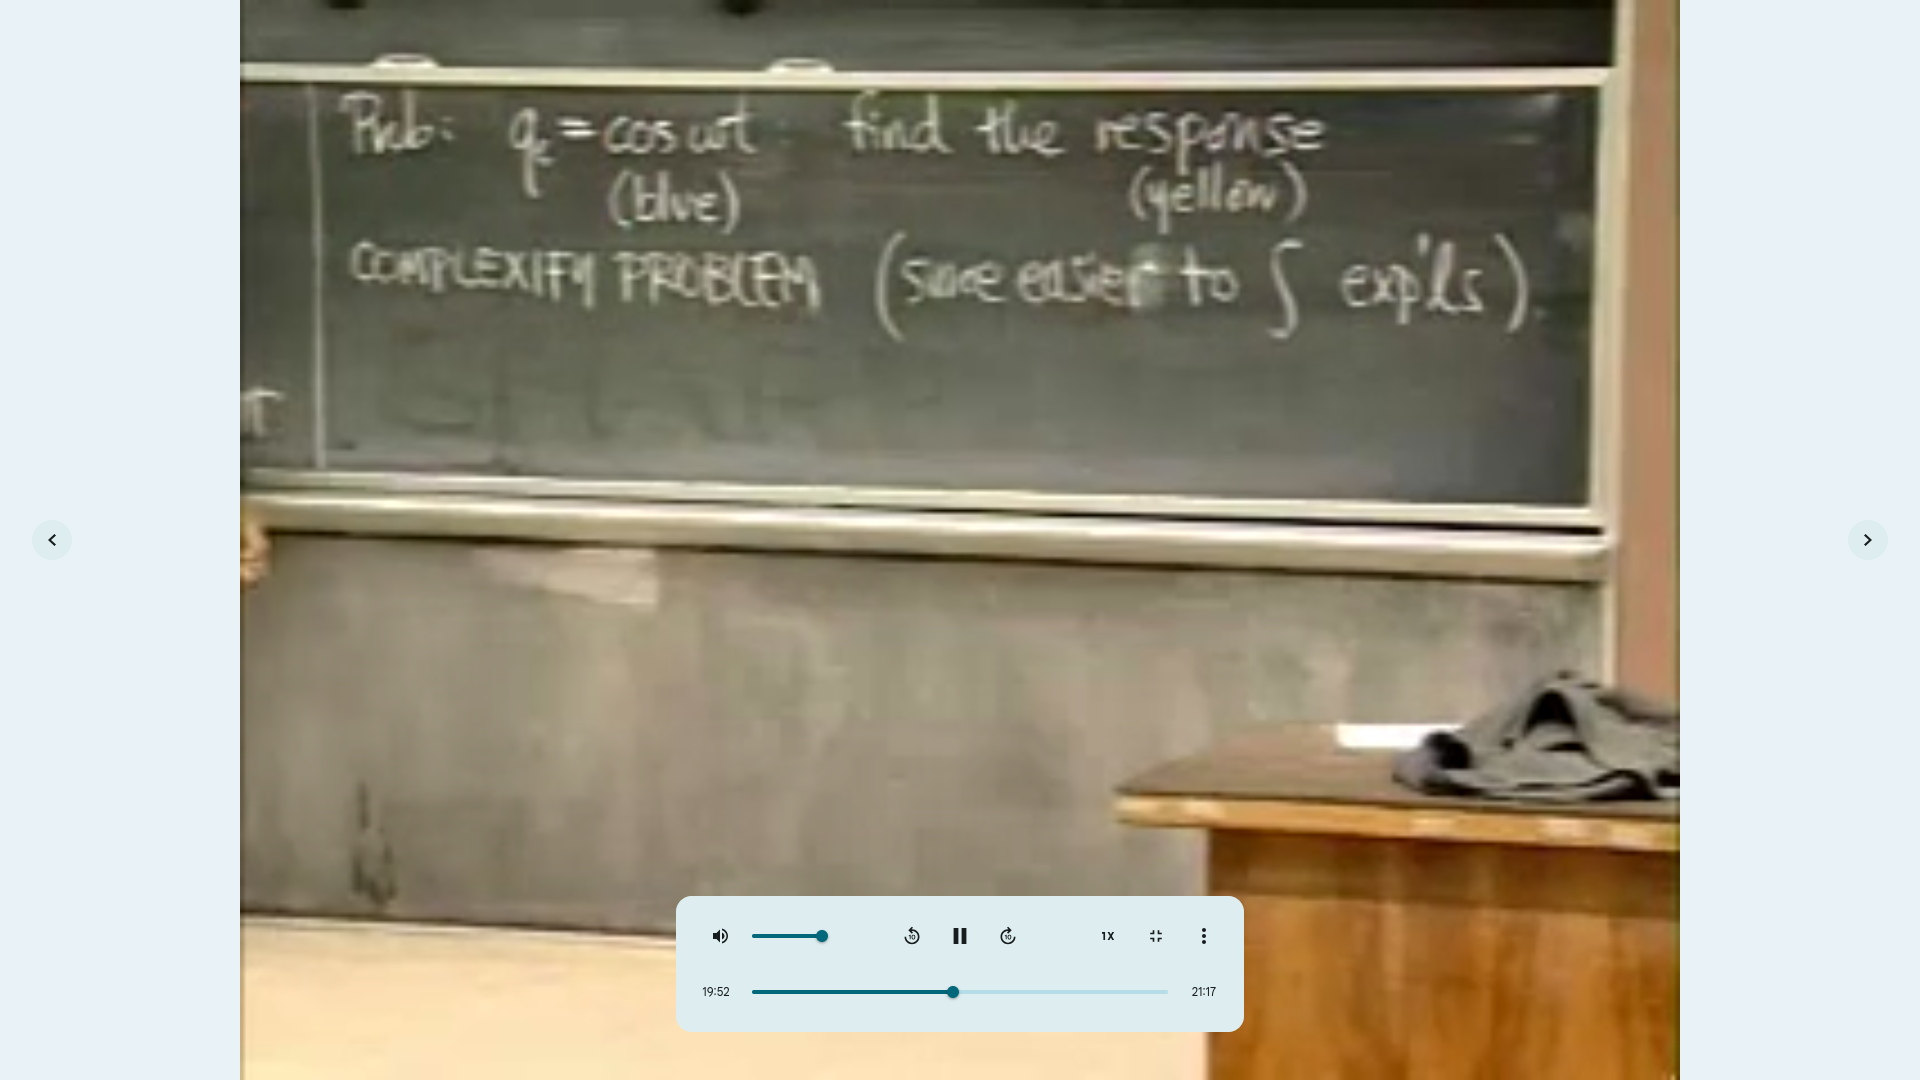 Prob: qe = cos ωt find the response
(blue) (yellow)
COMPLEXIFY PROBLEM (since easier to ∫ exp'ls).
10 10 1X
19:52 21:17